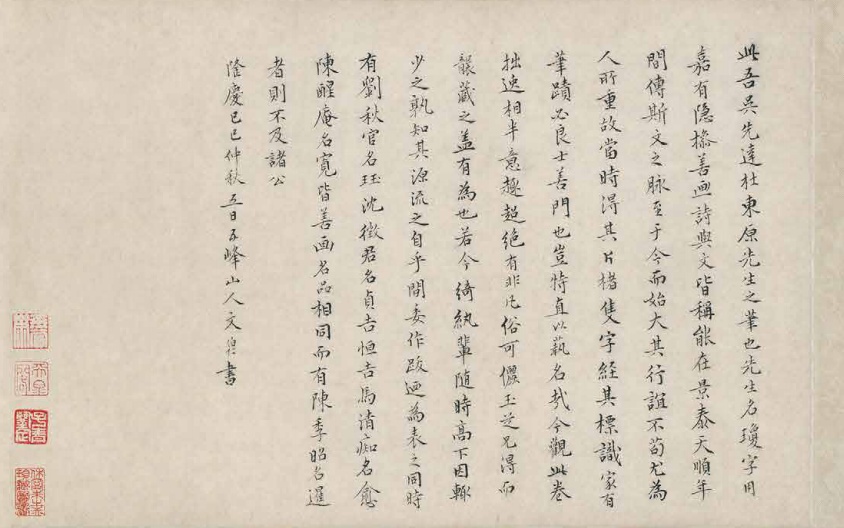 此吾吳先達杜東原先生之筆也先生名瓊字用
嘉有隱操善画詩與文皆稱能在景泰天順年
間傳斯文之脉至于今而始大其行誼不苟尤為
人所重故當時得其片楮隻字經其標識家有
筆蹟必良士善門也豈特直以藝名哉今觀此卷
拙逸相半意趣超絕有非凡俗可儷玉芝兄得而
襲藏之盖有為也若今綺紈輩隨時高下因輙
少之孰知其源流之自乎間委作跋迺為表之同時
有劉秋官名珏沈徵君名貞吉恒吉馬清痴名愈
陳醒庵名寬皆善画名品相同而有陳季昭名暹
者則不及諸公
隆慶己巳仲秋五日五峰山人文伯仁書